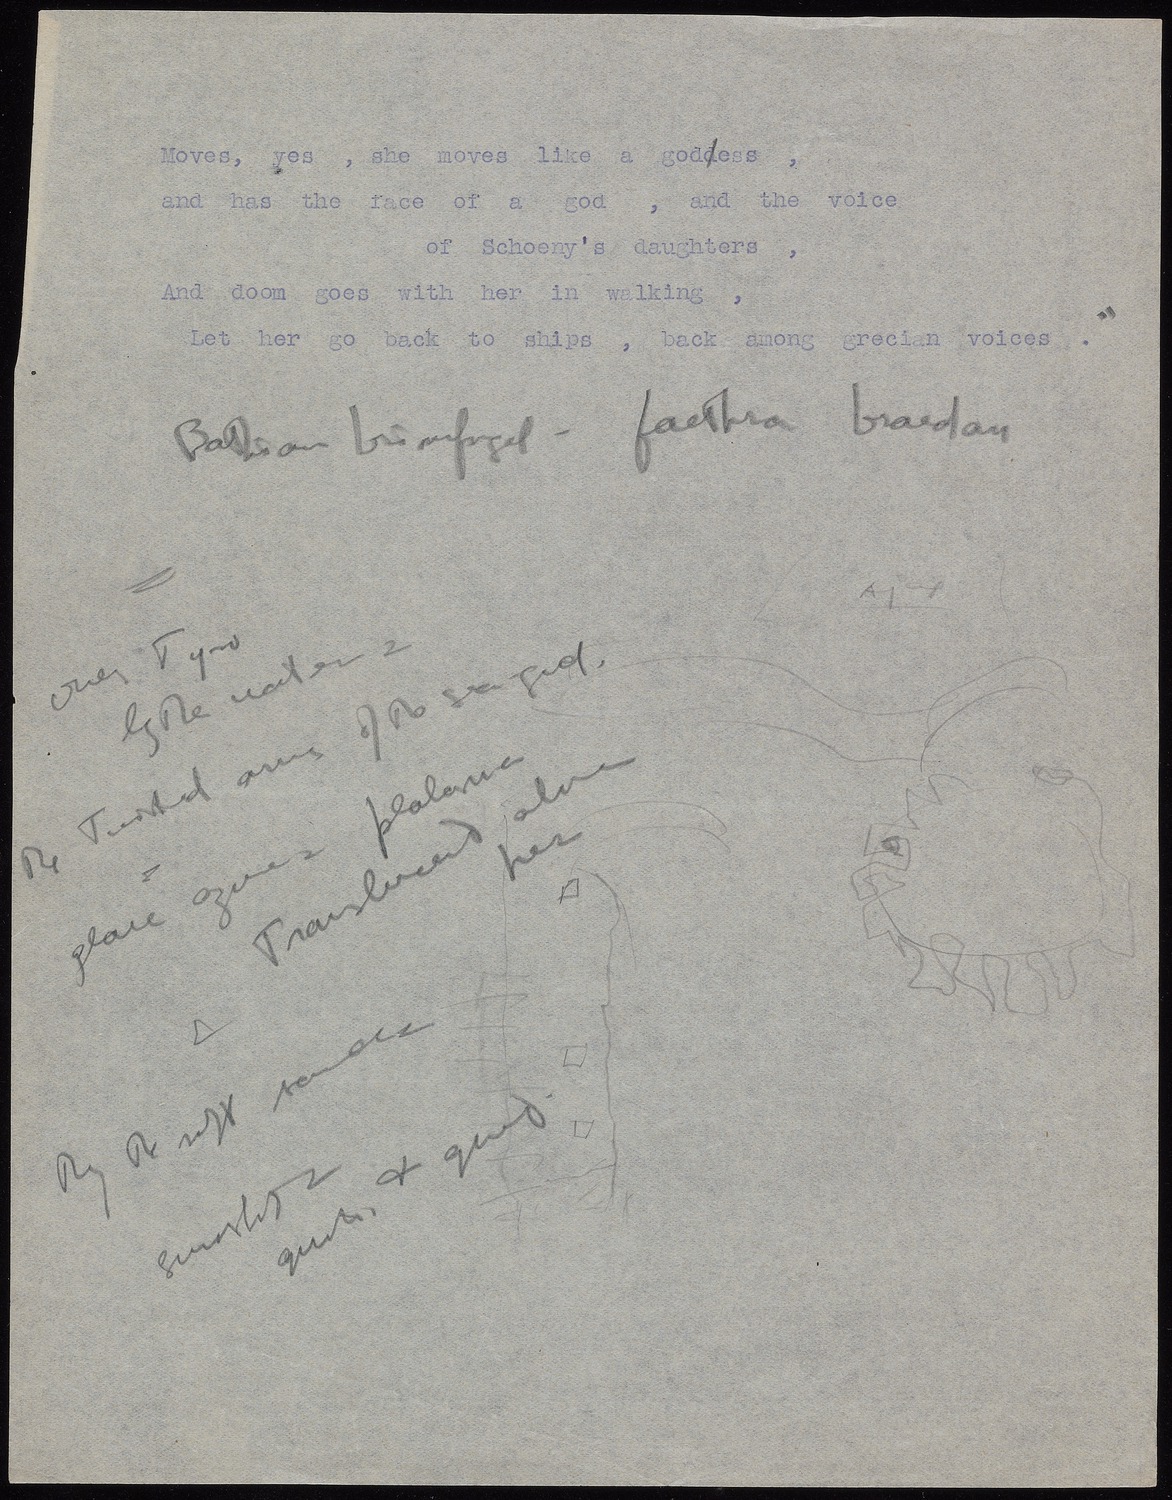 Moves, yes , she moves like a goddess ,
and has the face of a god , and the voice
of Schoeny's daughters ,
And doom goes with her in walking ,
Let her go back to ships , back among grecian voices ."
Bathian brimfugel - faethra braedan
over Tyro
The Twisted arms of the sea god.
glare azure
Translucent above
her
the soft sands
quiet, & quiet.